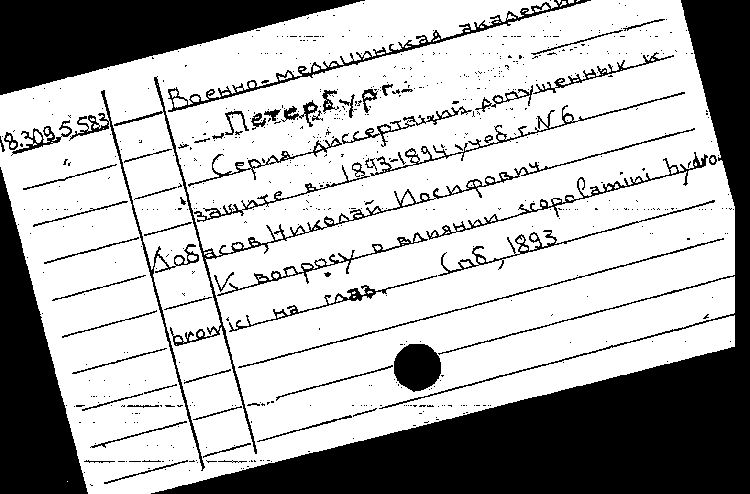 18.309.5.583
Военно-медицинская академи
Петербург.
Серия диссертаций допущенных к
защите в... 1893-1894 учеб.г. N 6.
Лобасов, Николай Иосифович.
К вопросу о влиянии scopolamini hydro-
bromici на глаз. Спб., 1893